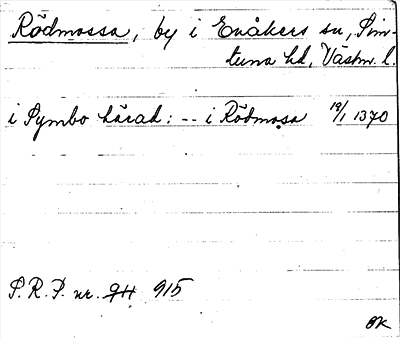 Rödmossa, by i Enåkers sn, Sim-
tuna hd, Västm. l.
i Symbo härad: -- i Rödmosa 19/1 1370
S.R.P. nr. 911 915
OK